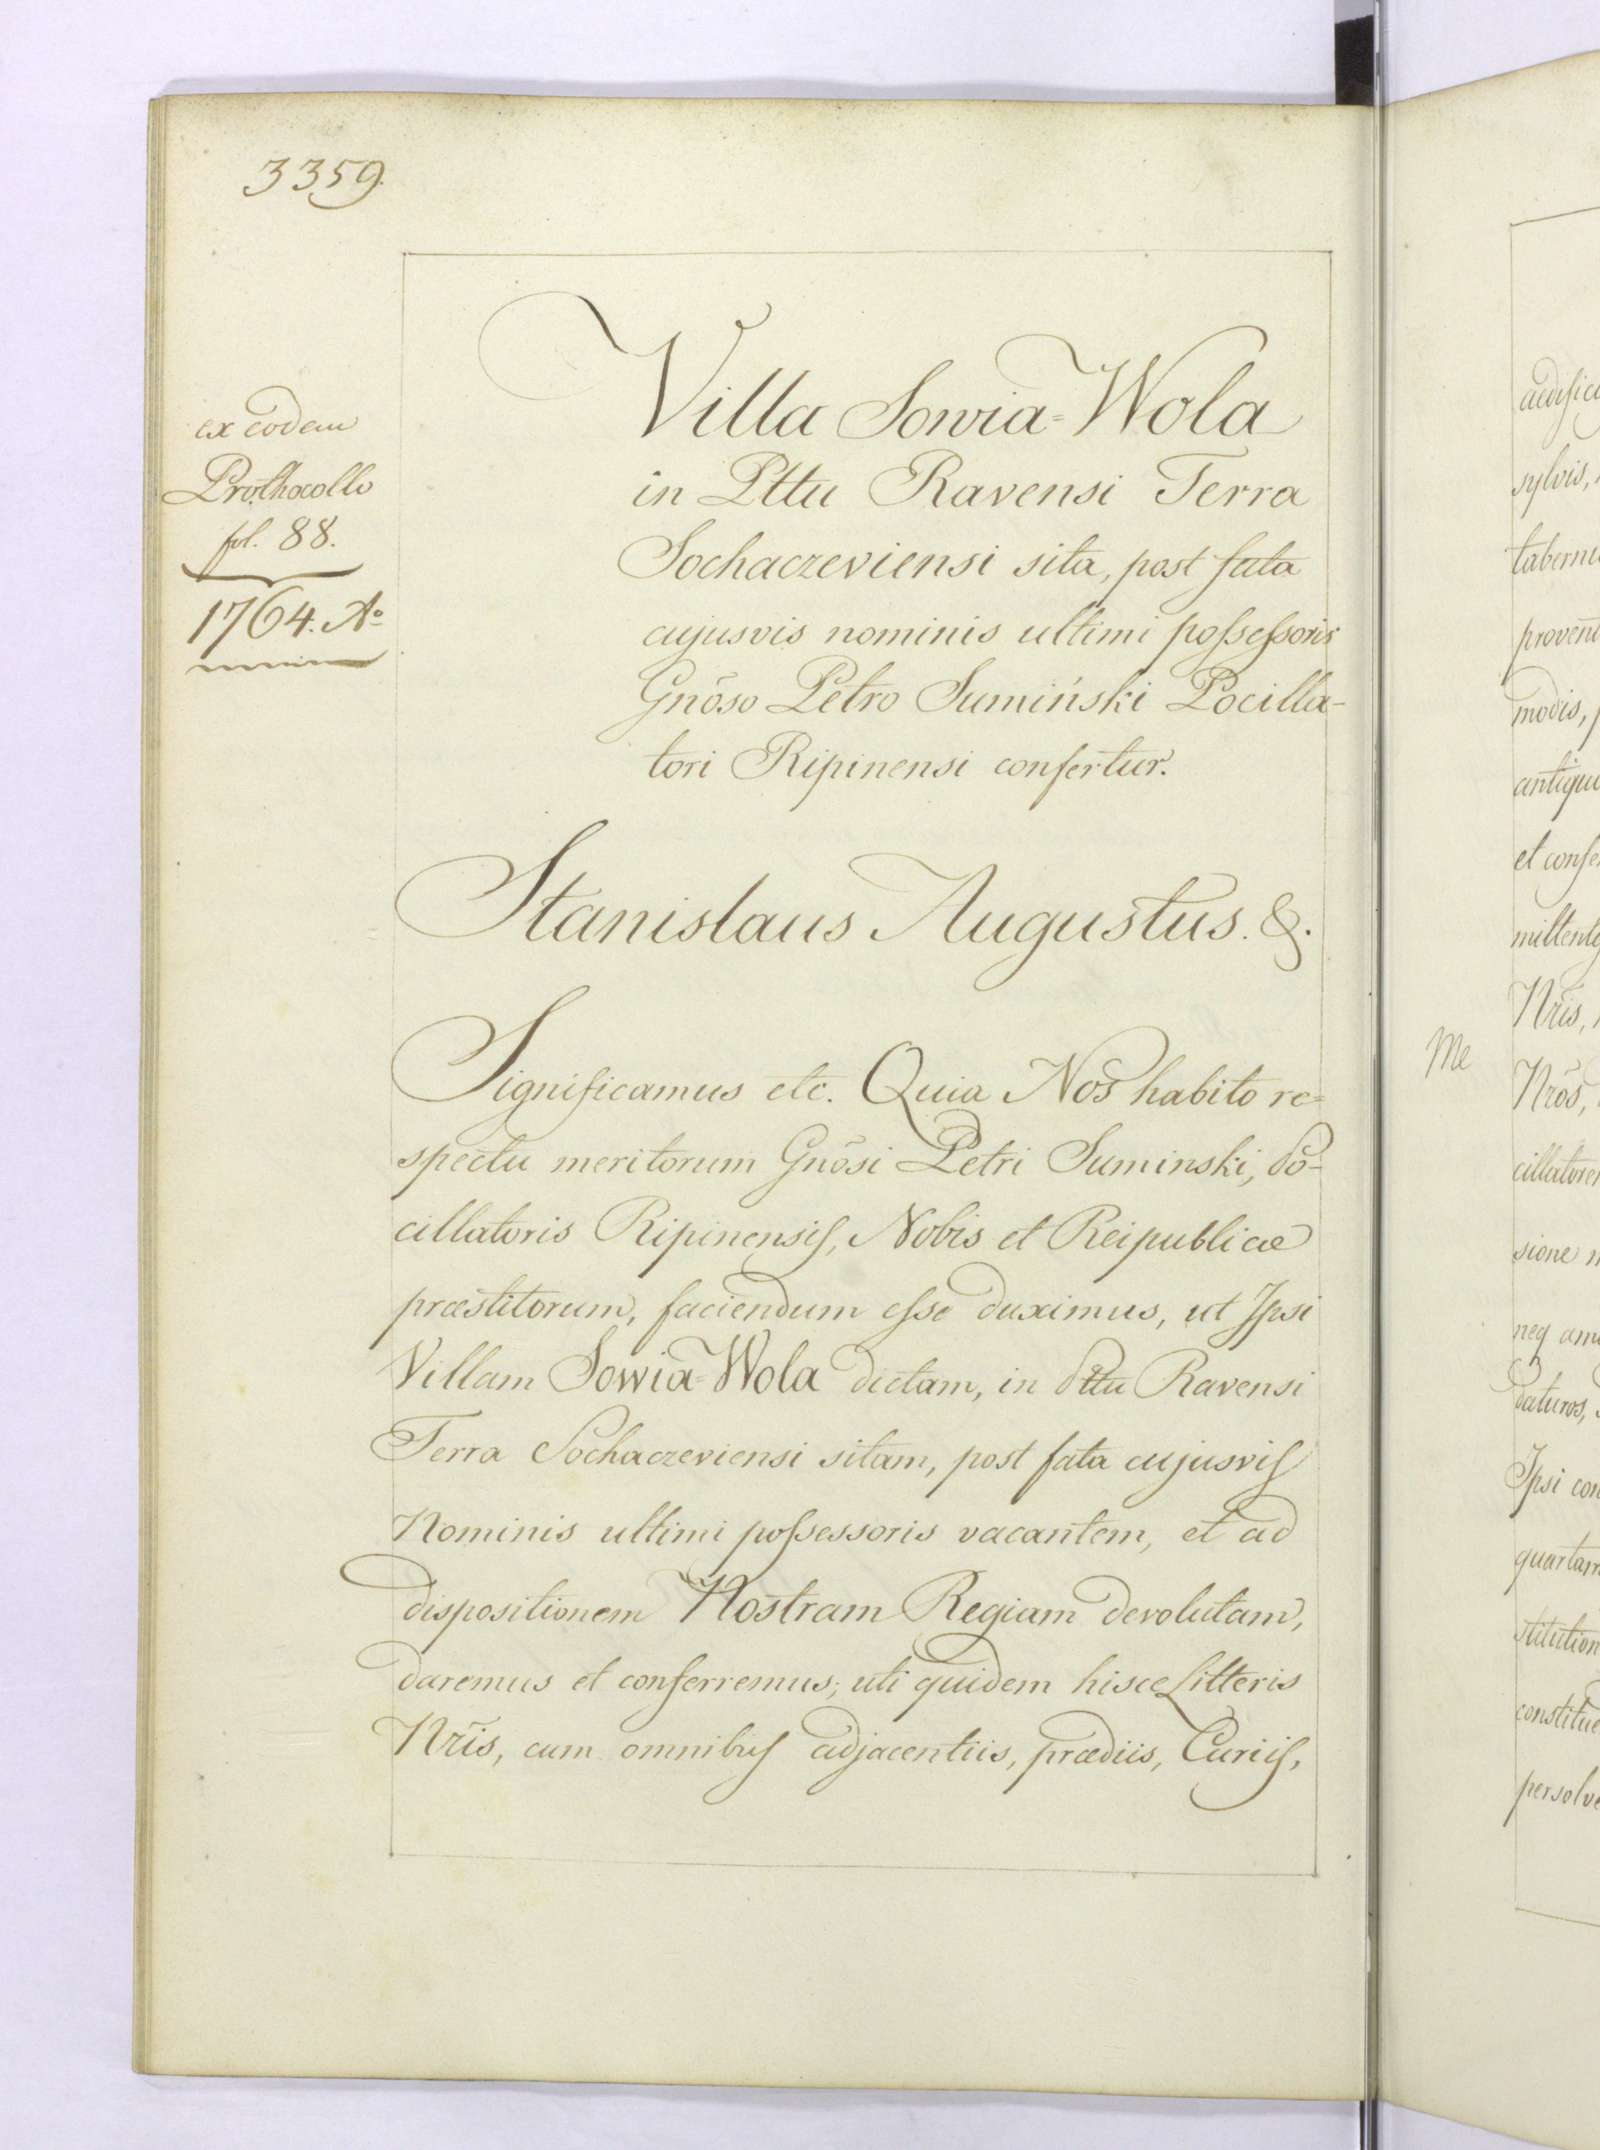 3359.
ex eodem
Prothocollo
fol. 88.
1764. Aº
Villa Sowia=Wola
in Pttu Ravensi Terra
Sochaczeviensi sita, post fata
cujusvis nominis ultimi possessoris
Gnōso Petro Sumiński Pocilla-
tori Ripinensi confertur.
Stanislaus Augustus. &.
Significamus etc. Quia Nos habito re=
spectu meritorum Gnōsi Petri Suminski, Po-
cillatoris Ripinensis, Nobis et Reipublicæ
præstitorum, faciendum esse duximus, ut Ipsi
Villam Sowia=Wola dictam, in Pttu Ravensi
Terra Sochaczeviensi sitam, post fata cujusvis
Nominis ultimi possessoris vacantem, et ad
dispositionem Nostram Regiam devolutam,
daremus et conferremus; uti quidem hisce Litteris
Nr̄is, cum omnibus adjacentiis, prædiis, Curiis,
Me
sylvis,
modis,
et
Nr̄is,
Nrōs,
sione
neq
daturos,
Ipsi